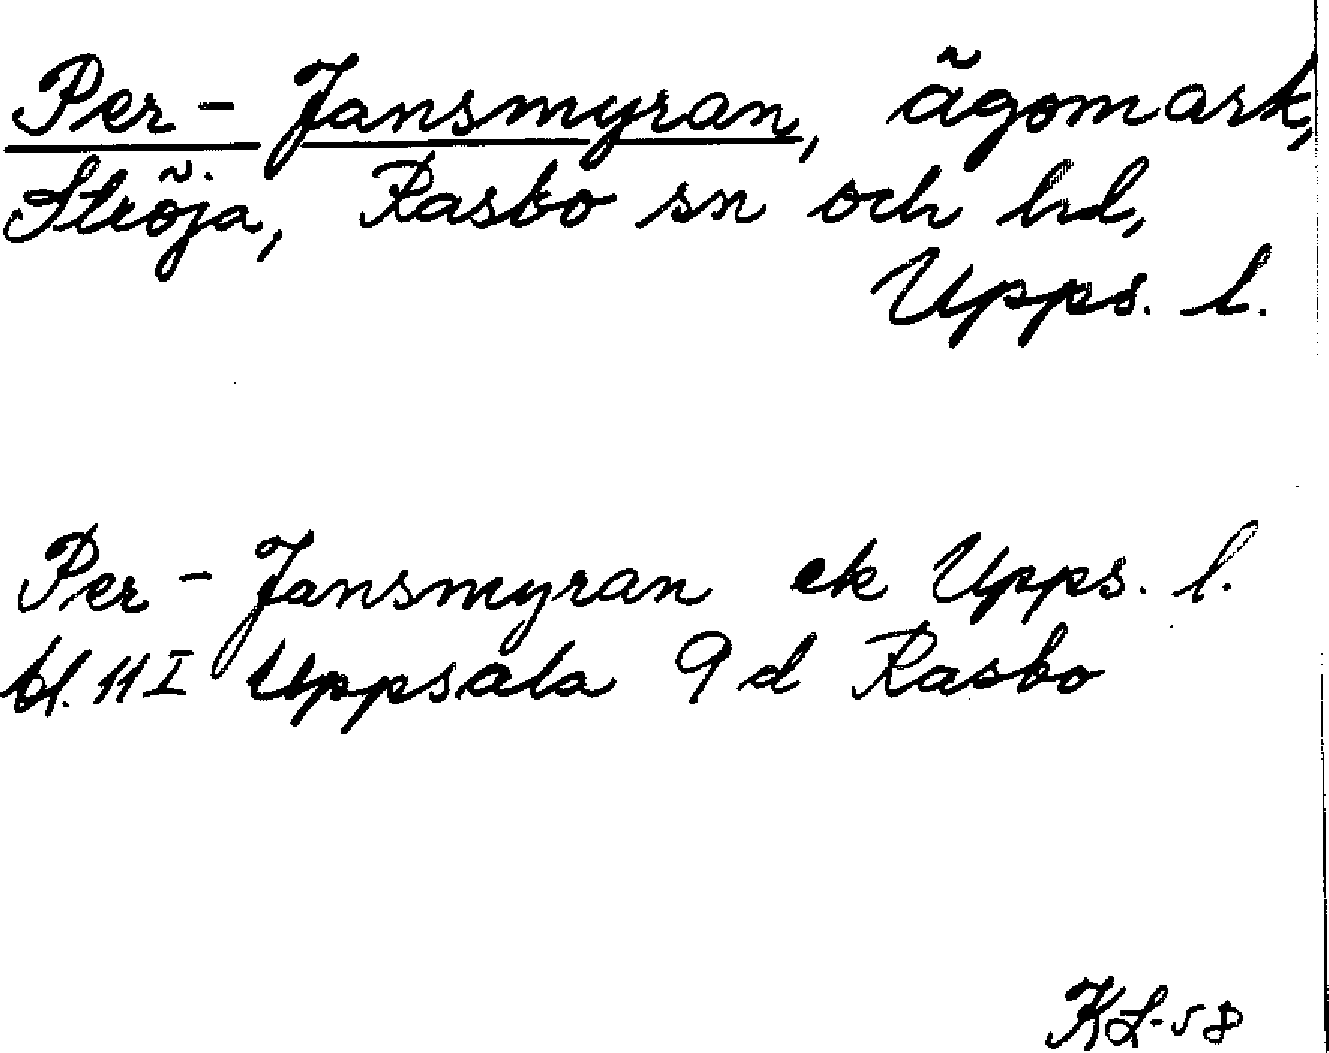 Per-Jansmyran, ägomark,
Ströja, Rasbo sn och hd,
Upps. l.
Per-Jansmyran ek Upps. l.
bl. 11 I Uppsala 9 d Rasbo
KL-58